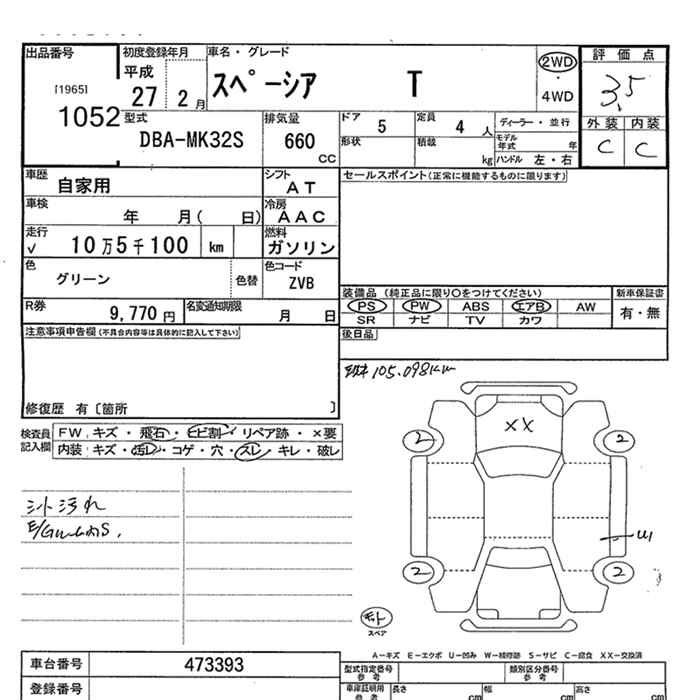 出品番号
[1965]
1052
初度登録年月
平成
27 2月
車名・グレード
スペーシア T
2WD
・
4WD
評価点
3.5
外装 内装
C C
型式
DBA-MK32S
排気量
660
CC
ドア
5
定員
4 人
ディーラー・並行
形状
積載
kg
モデル年式 年
ハンドル 左・右
車歴
自家用
シフト
AT
セールスポイント(正常に機能するものに限ります)
車検
年 月( 日)
冷房
AAC
走行
√ 10万5千100 km
燃料
ガソリン
色
グリーン
色替
色コード
ZVB
装備品 (純正品に限り○をつけてください)
新車保証書
PS PW ABS エアB AW
有・無
SR ナビ TV カワ
R券
9,770 円
名変通知期限
月 日
後日品
注意事項申告欄(不具合内容等は具体的に記入して下さい)
105.098km
修復歴 有〔箇所 〕
検査員
記入欄
FW キズ・飛石・ヒビ割・リペア跡・×要
内装 キズ・汚レ・コゲ・穴・スレ・キレ・破レ
XX
2 2
シート汚れ
U1
2 2
スペア
A-キズ E-エクボ U-凹み W-補修跡 S-サビ C-腐食 XX-交換済
車台番号
473393
登録番号
型式指定番号
参考
類別区分番号
参考
車庫証明用
参考
長さ cm
幅 cm
高さ cm